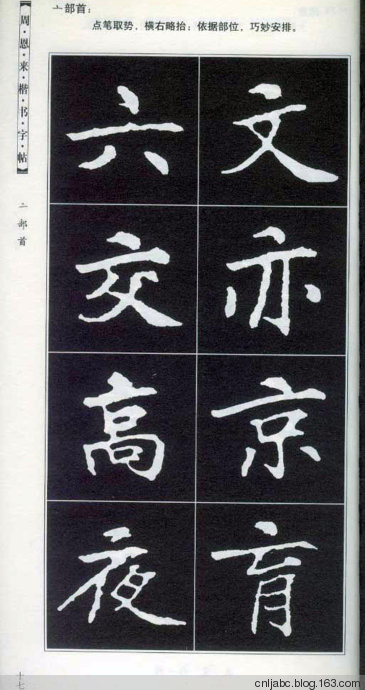 亠部首：
点笔取势、横右略抬；依据部位，巧妙安排。
【周·恩·来·楷·书·字·帖】
亠部首
六 文
交 亦
高 京
夜 育
十七
cnljabc.blog.163.com